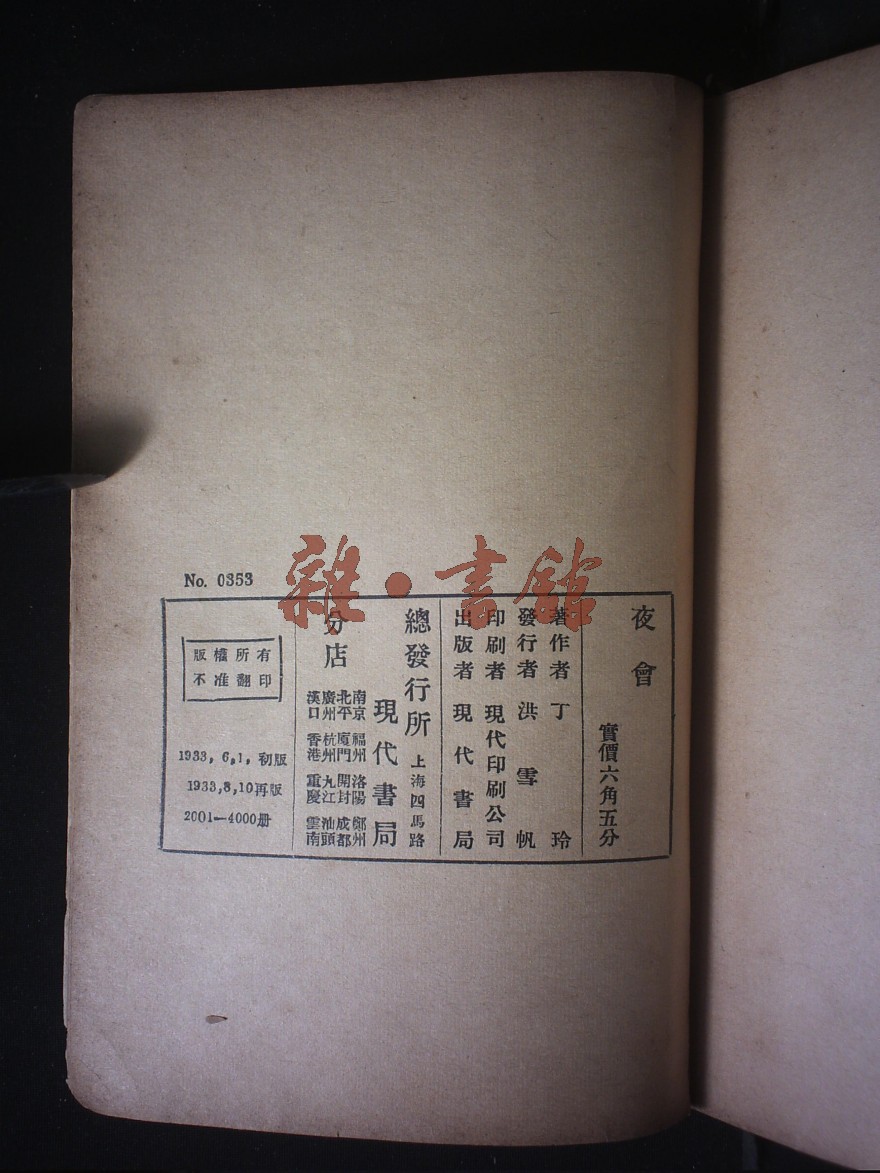 雜·書館
No. 0353
夜會
實價六角五分
著作者 丁玲
發行者 洪雪帆
印刷者 現代印刷公司
出版者 現代書局
總發行所 上海四馬路
現代書局
分店
南京 福州 洛陽 鄭州
北平 廈門 開封 成都
廣州 杭州 九江 汕頭
漢口 香港 重慶 雲南
版權所有
不准翻印
1933,6,1,初版
1933,8,10再版
2001—4000册